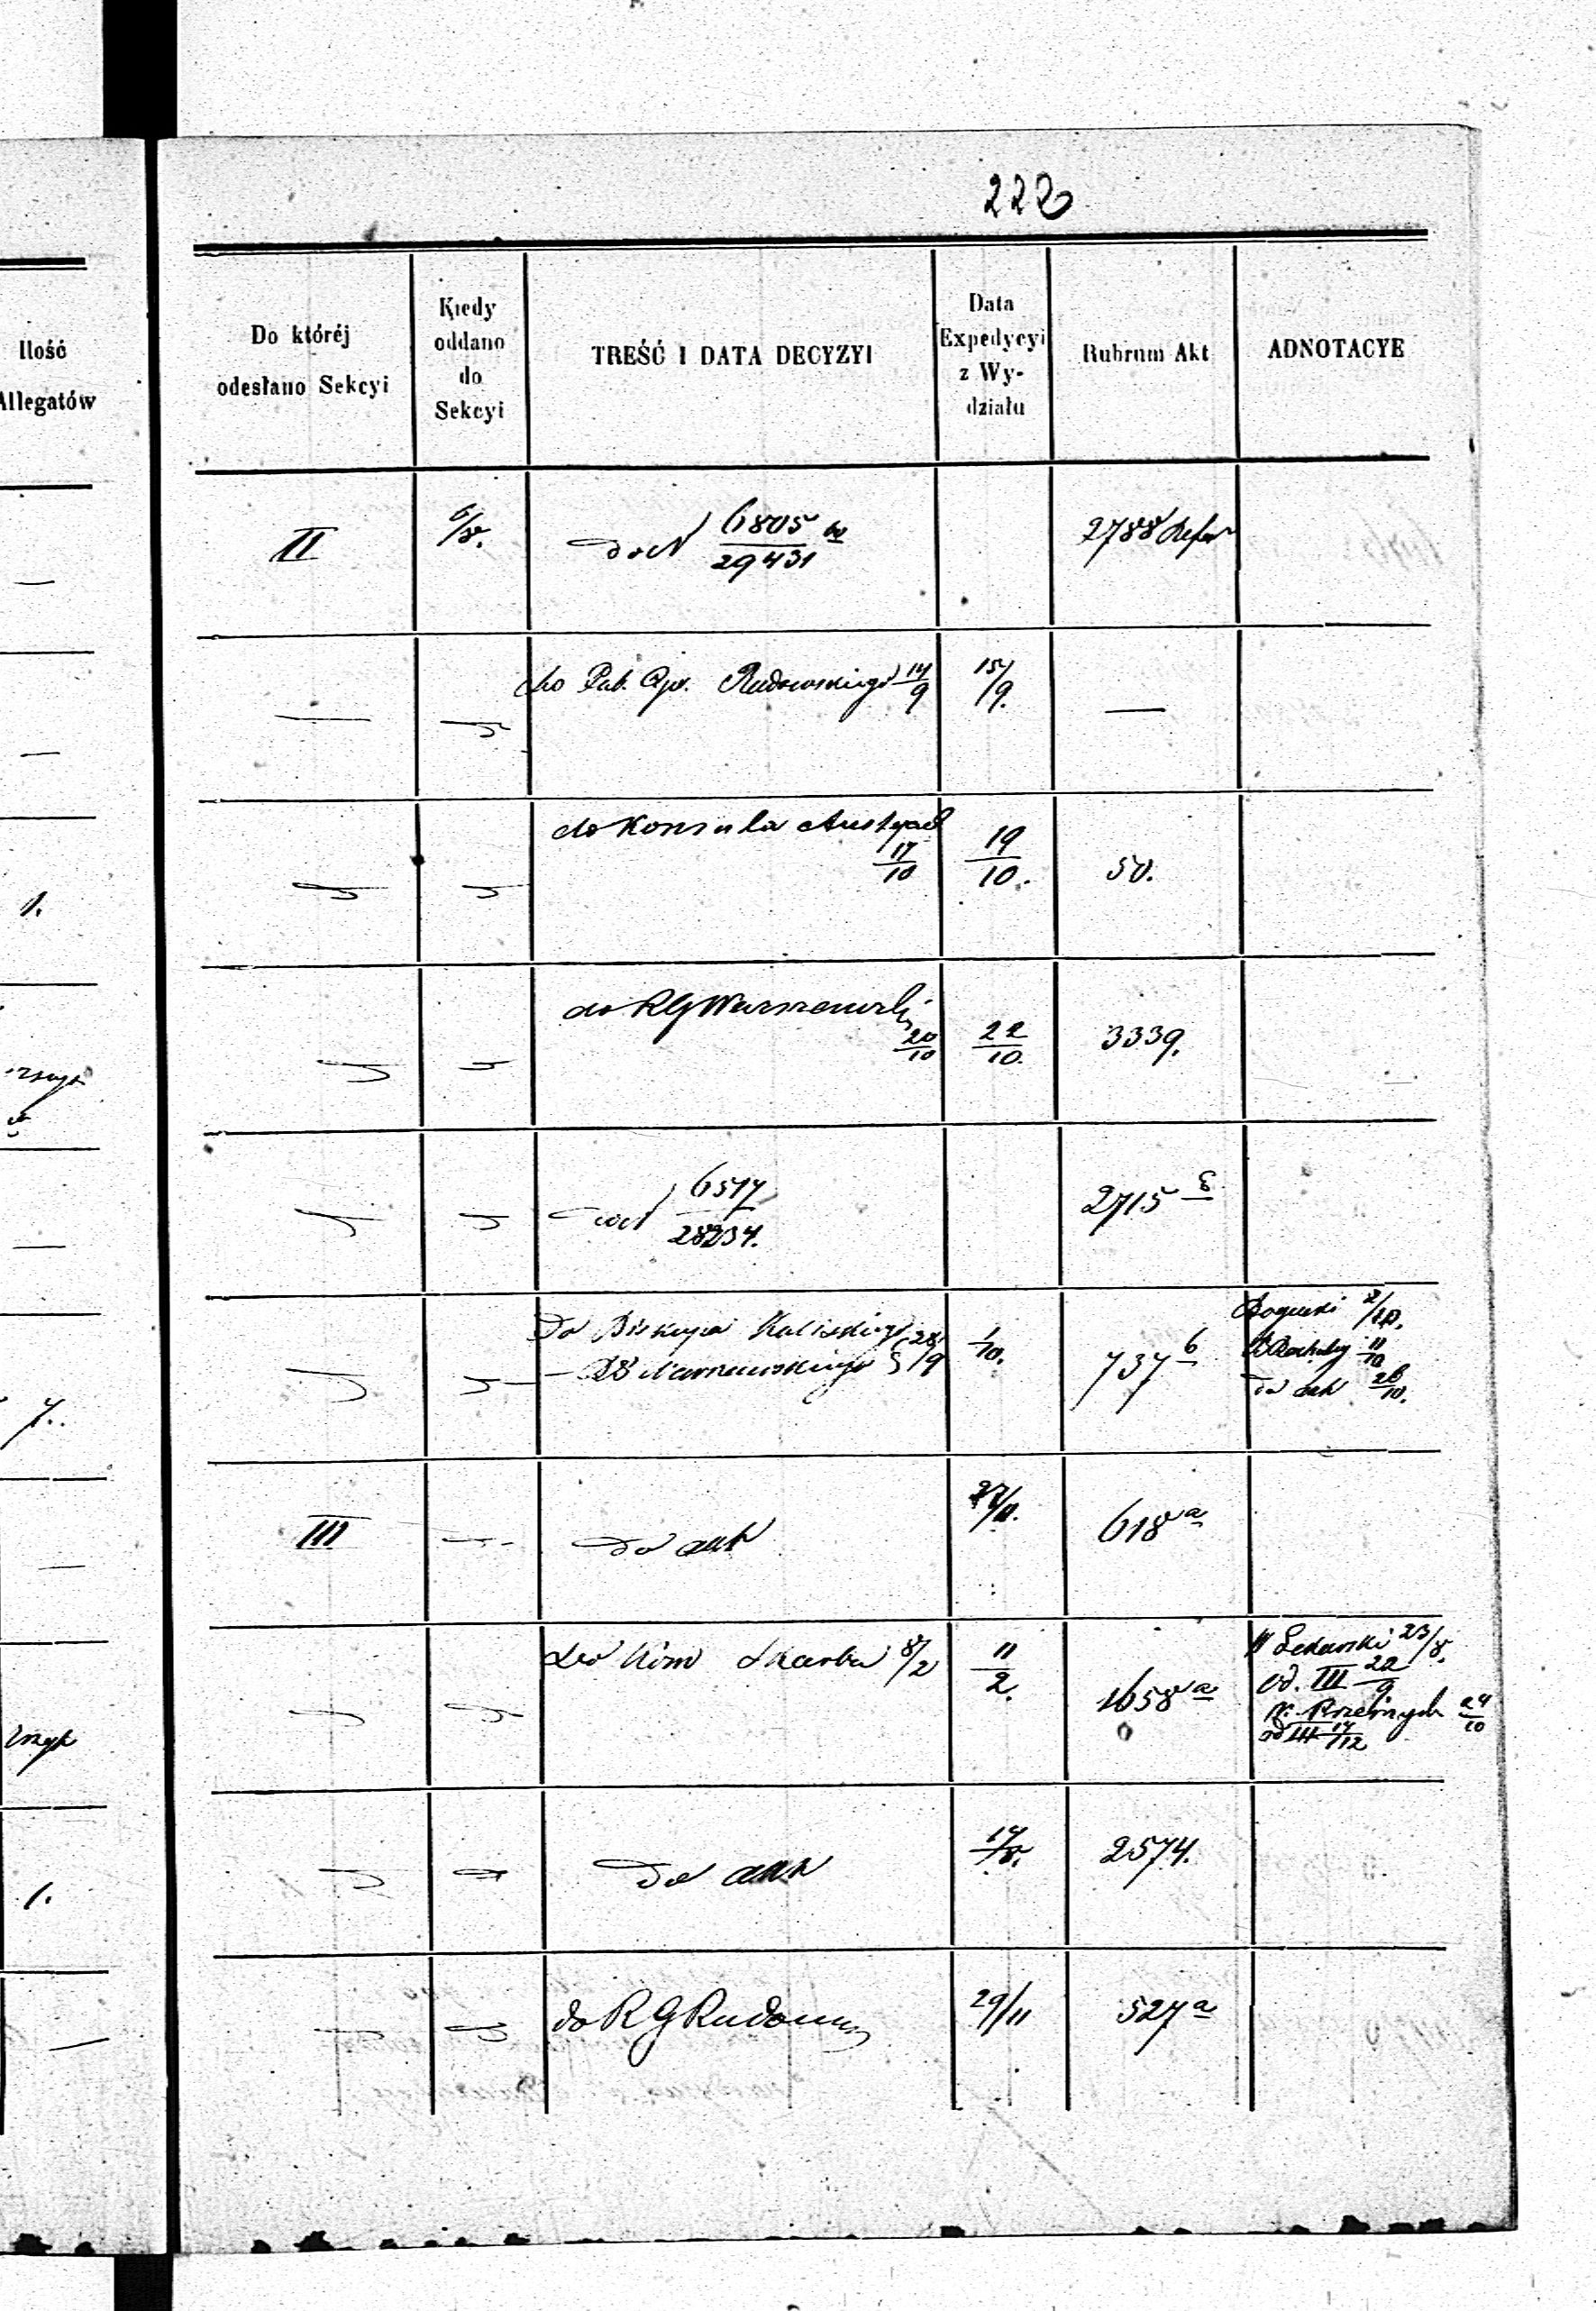 222
Ilość
Allegatów
Do któréj
odesłano Sekcyi
Kiedy
oddano
do
Sekcyi
TREŚĆ I DATA DECYZYI
Data
Expedycyi
z Wy-
działu
Rubrum Akt
ADNOTACYE
II
6/8.
do N 6805/29431
2788
do Radomskiego 14/9
15/9.
1.
do Konsula Austryac
17/10
19/10.
50.
do RG Warszawski
20/10
22/10.
3339.
do N 6517/28234.
2715
Do Biskupa Kaliskiego 28/9
Warszawskiego
1/10.
737 b
2/10.
11/10
do akt 26/10.
7.
III
do akt
27/11.
618 a
do Kom Skarbu 8/2
11/2.
1658 a
Lekarski 23/8.
od. III 22/9
24/10
od III 14/12
do akt
14/8.
2574.
1.
do R G Radoms
29/11
527 a